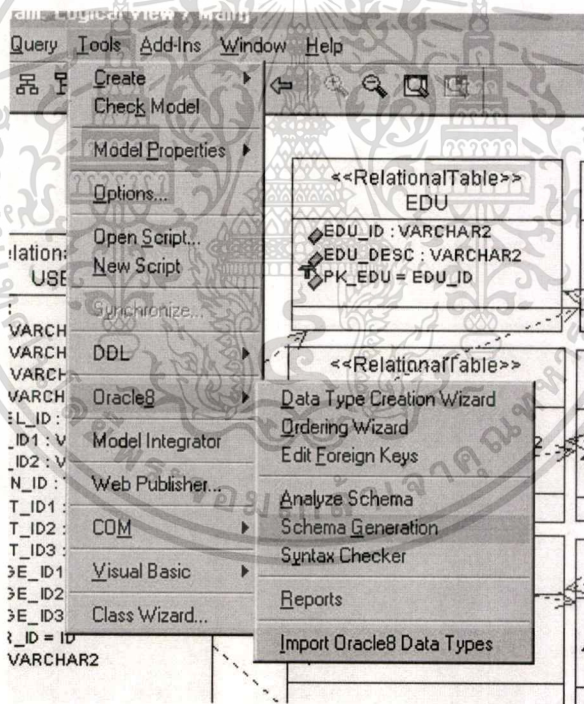 ram: Logical View / Main]
Query Tools Add-Ins Window Help
Create
Check Model
Model Properties
Options...
Open Script...
New Script
Synchronize...
DDL
Oracle8
Model Integrator
Web Publisher...
COM
Visual Basic
Class Wizard...
Data Type Creation Wizard
Ordering Wizard
Edit Foreign Keys
Analyze Schema
Schema Generation
Syntax Checker
Reports
Import Oracle8 Data Types
<<RelationalTable>>
EDU
EDU_ID : VARCHAR2
EDU_DESC : VARCHAR2
PK_EDU = EDU_ID
<<RelationalTable>>
elation
USE
VARCH
VARCH
VARCH
VARCH
EL_ID :
_ID1 : V
_ID2 : V
N_ID :
T_ID1 :
T_ID2 :
T_ID3 :
GE_ID1
GE_ID2
GE_ID3
R_ID = ID
VARCHAR2